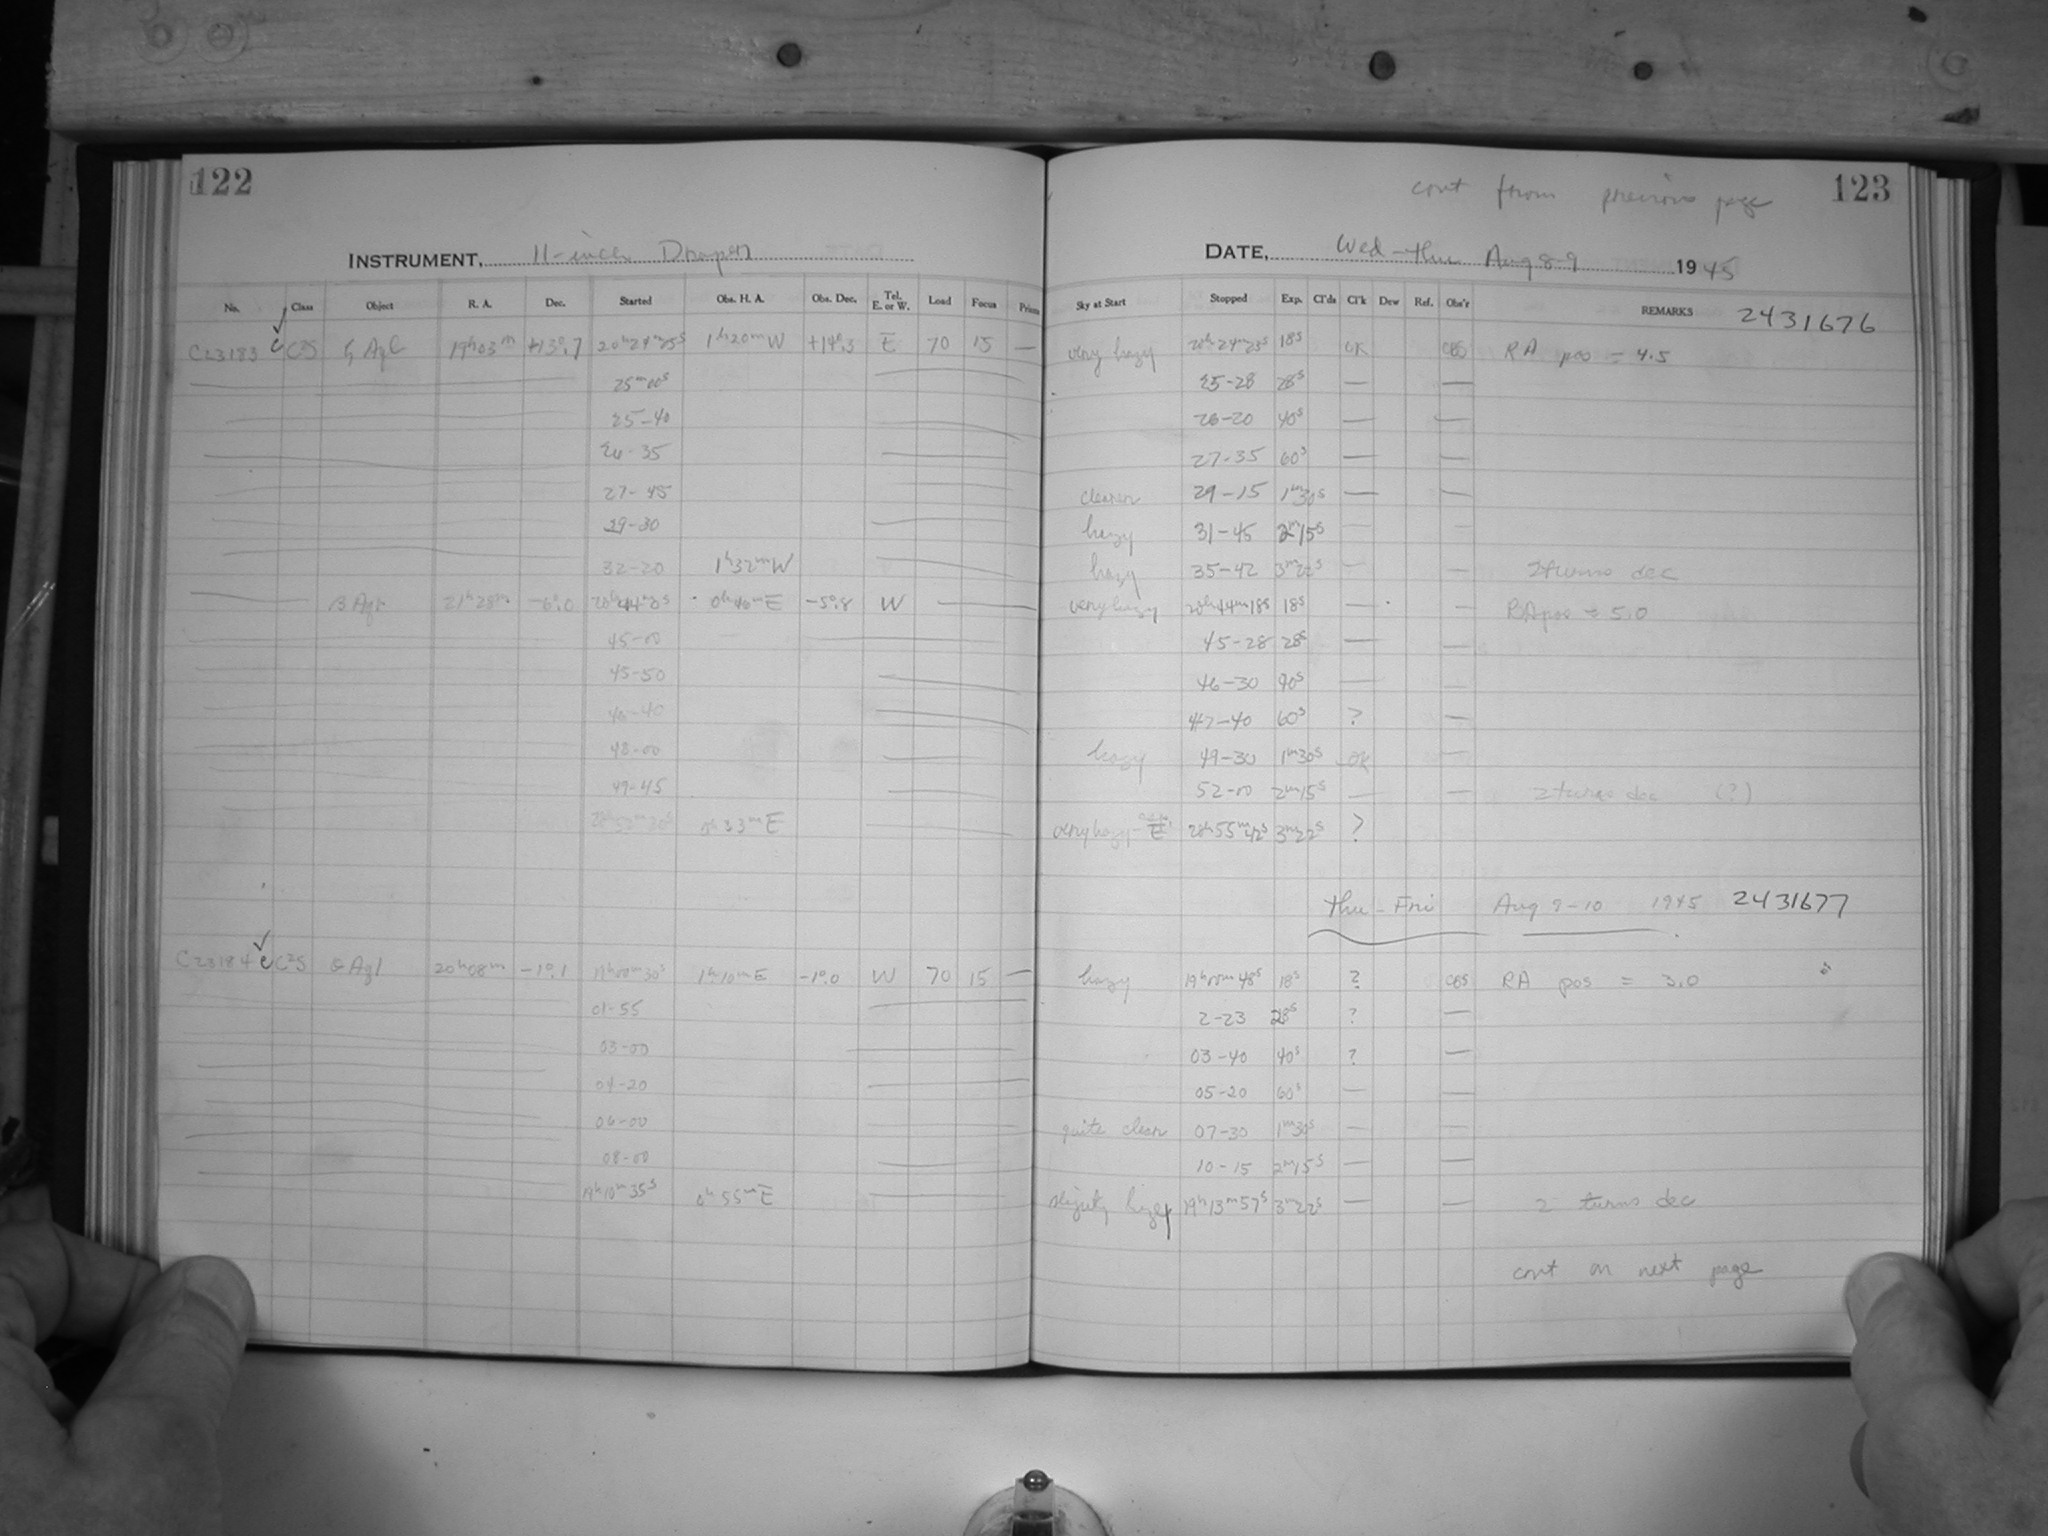 122
INSTRUMENT, 11-inch Draper
No. Class Object R. A. Dec. Started Obs. H. A. Obs. Dec. Tel. E. or W. Load Focus Prism
C23183 C2S ζ Aql 19h03m +13°.7 20h24m05s 1h20mW +14°.3 E 70 15 —
25m00s
25-40
26-35
27-45
29-30
32-20 1h32mW
β Aqr 21h28m -6°.0 20h44m0s 0h40mE -5°.8 W
45-00
45-50
46-40
48-00
49-45
20h52m20s 0h33mE
C23184 C2S θ Aql 20h08m -1°.1 19h00m30s 1h10mE -1°.0 W 70 15 —
01-55
03-00
04-20
06-00
08-00
19h10m35s 0h55mE
cont from previous page 123
DATE, Wed-Thu Aug 8-9 1945
Sky at Start Stopped Exp. Cl'ds Cl'k Dew Ref. Obs'r REMARKS 2431676
very hazy 20h24m23s 18s OK CBS RA pos = 4.5
25-28 28s — —
26-20 40s — —
27-35 60s — —
clearer 29-15 1m30s — —
hazy 31-45 2m15s — —
hazy 35-42 3m22s — — 2 turns dec
very hazy 20h44m18s 18s — — RA pos = 5.0
45-28 28s — —
46-30 40s — —
47-40 60s ? —
hazy 49-30 1m30s OK —
52-00 2m15s — — 2 turns dec (?)
very hazy 20h55m42s 3m22s ?
Thu-Fri Aug 9-10 1945 2431677
hazy 19h00m48s 18s ? CBS RA pos = 3.0
2-23 28s ? —
03-40 40s ? —
05-20 60s — —
quite clear 07-30 1m30s — —
10-15 2m15s — —
slightly hazy 19h13m57s 3m22s — — 2 turns dec
cont on next page